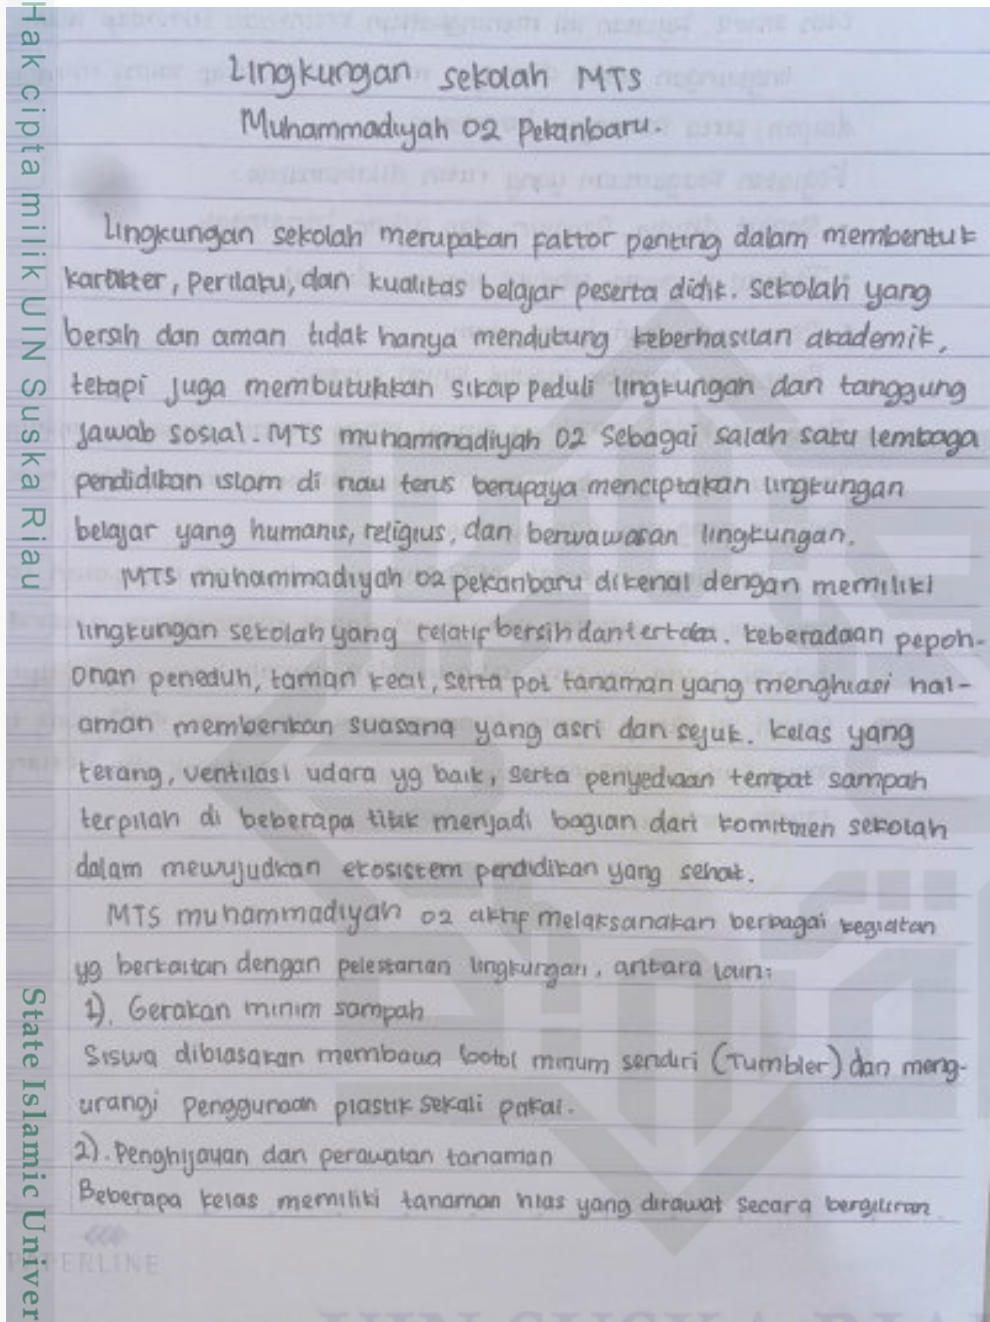 Lingkungan sekolah MTS
Muhammadiyah 02 Pekanbaru.
Lingkungan sekolah merupakan faktor penting dalam membentuk
karakter, Perilaku, dan kualitas belajar peserta didik. sekolah yang
bersih dan aman tidak hanya mendukung keberhasilan akademik,
tetapi juga membutuhkan sikap peduli lingkungan dan tanggung
jawab sosial. MTS muhammadiyah 02 Sebagai salah satu lembaga
pendidikan islam di riau terus berupaya menciptakan lingkungan
belajar yang humanis, religius, dan berwawasan lingkungan.
MTS muhammadiyah 02 pekanbaru dikenal dengan memiliki
lingkungan sekolah yang relatif bersih dan tertata. keberadaan pepoh-
onan peneduh, taman kecil, serta pot tanaman yang menghiasi hal-
aman memberikan suasana yang asri dan sejuk. kelas yang
terang, ventilasi udara yg baik, serta penyediaan tempat sampah
terpilah di beberapa titik menjadi bagian dari komitmen sekolah
dalam mewujudkan ekosistem pendidikan yang sehat.
MTS muhammadiyah 02 aktif melaksanakan berbagai kegiatan
yg berkaitan dengan pelestarian lingkungan, antara lain:
1). Gerakan minim sampah
Siswa dibiasakan membawa botol minum sendiri (Tumbler) dan meng-
urangi penggunaan plastik sekali pakai.
2). Penghijauan dan perawatan tanaman
Beberapa kelas memiliki tanaman hias yang dirawat secara bergiliran
PAPERLINE
Hak cipta milik UIN Suska Riau
State Islamic Univer
UIN SUSKA RIAU